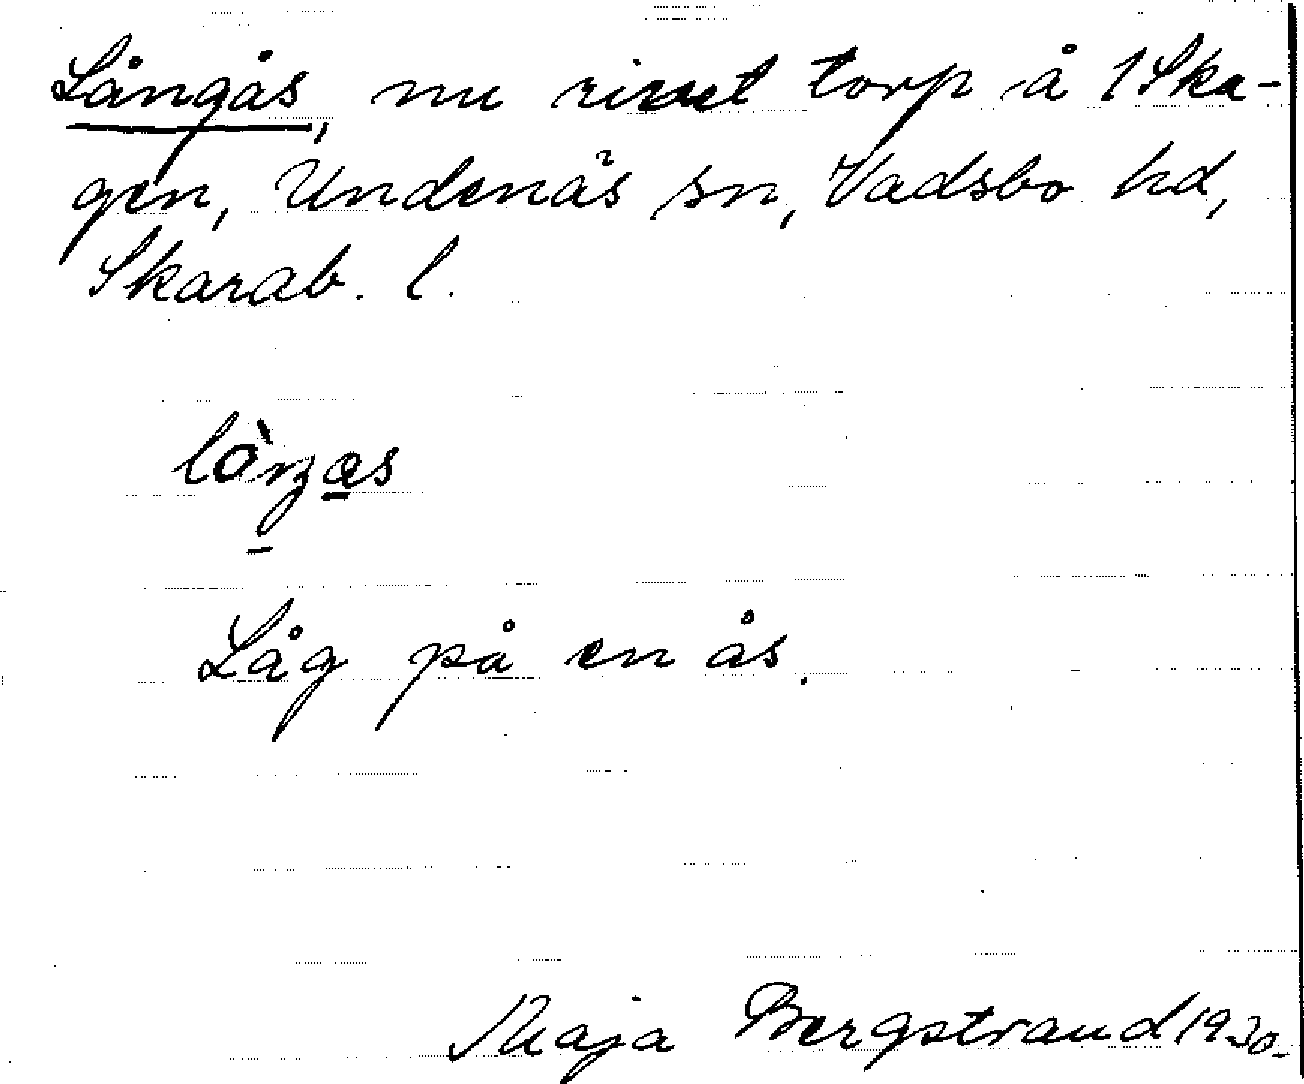 Långås, nu rivet torp å 1 Ska-
gen, Undenäs sn, Vadsbo hd,
Skarab. l.
lòŋas
Låg på en ås.
Maja Bergstrand 1930.